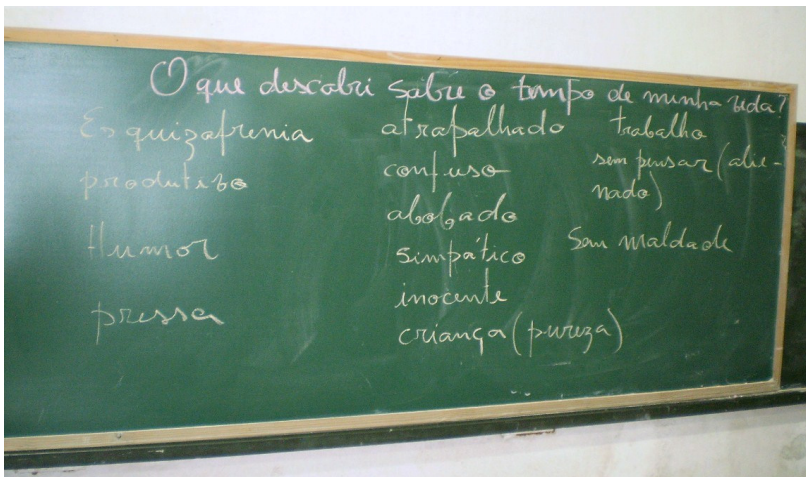 O que descobri sobre o tempo de minha vida?
Esquizofrenia
produtivo
Humor
pressa
atrapalhado
confuso
abobado
simpático
inocente
criança (pureza)
trabalho
sem pensar (alie-
nado)
Sem maldade